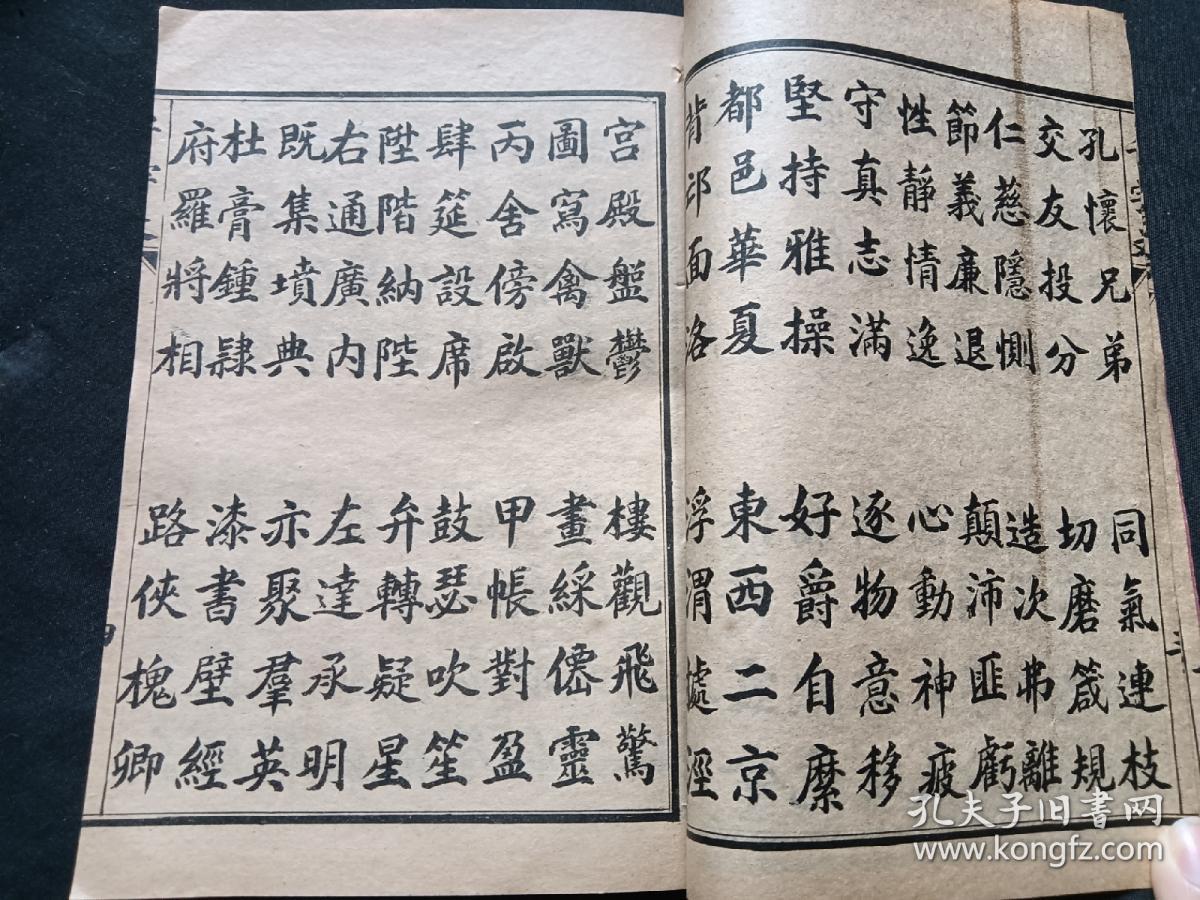 孔懷兄弟 同氣連枝
交友投分 切磨箴規
仁慈隱惻 造次弗離
節義廉退 顛沛匪虧
性靜情逸 心動神疲
守真志滿 逐物意移
堅持雅操 好爵自縻
都邑華夏 東西二京
背邙面洛 浮渭據涇
宮殿盤鬱 樓觀飛驚
圖寫禽獸 畫綵僊靈
丙舍傍啟 甲帳對盈
肆筵設席 鼓瑟吹笙
陞階納陛 弁轉疑星
右通廣內 左達承明
既集墳典 亦聚羣英
杜膏鍾隸 漆書壁經
府羅將相 路俠槐卿
孔夫子旧书网
www.kongfz.com